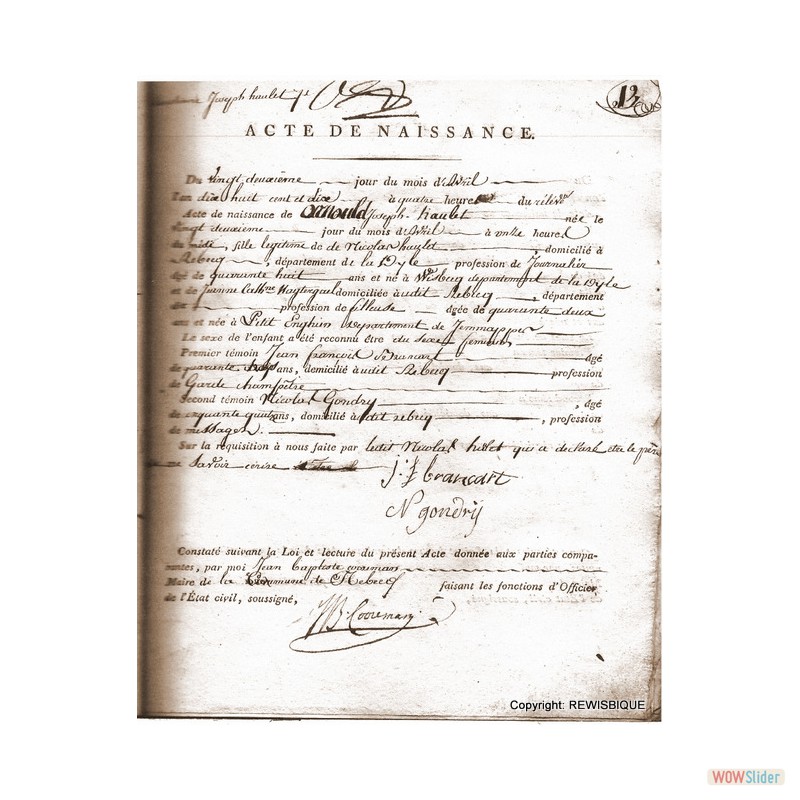 Joseph haulet
12
ACTE DE NAISSANCE.
Du vingt deuxième jour du mois d'Avril
l'an dix huit cent et dix à quatre heures du relévé
Acte de naissance de Joseph haulet née le
vingt deuxième jour du mois d'Avril à onze heures
du midi, fille legitime de de Nicolas haulet domicilié à
Rebecq, département de la Dyle profession de Journalier
âgé de quarante huit ans et né à Wisbecq departement de la Dyle
et de Jeanne domiciliée audit Rebecq, département
profession de fileuse âgée de quarante deux
ans et née à Petit Enghien departement de Jemmappes
Le sexe de l'enfant a été reconnu être du sexe femenin
Premier témoin Jean françois Brancart âgé
de quarante ans, domicilié audit Rebecq profession
de Garde champètre
Second témoin Nicolas Gondry, âgé
de cinquante ans, domicilié audit rebecq, profession
de messager.
Sur la réquisition à nous faite par ledit Nicolas qui a declaré etre le père
ne savoir ecrire
j. f brancart
N gondrij
Constaté suivant la Loi et lecture du présent Acte donnée aux parties compa-
rantes, par moi Jean baptiste cooreman
Maire de la Commune de Rebecq faisant les fonctions d'Officier
de l'État civil, soussigné,
JB. Cooreman
Copyright: REWISBIQUE
WOWSlider